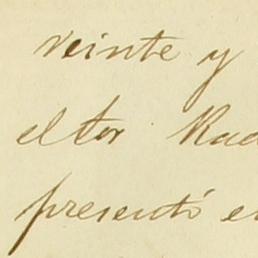 veinte y
eltor Rad
presentó en